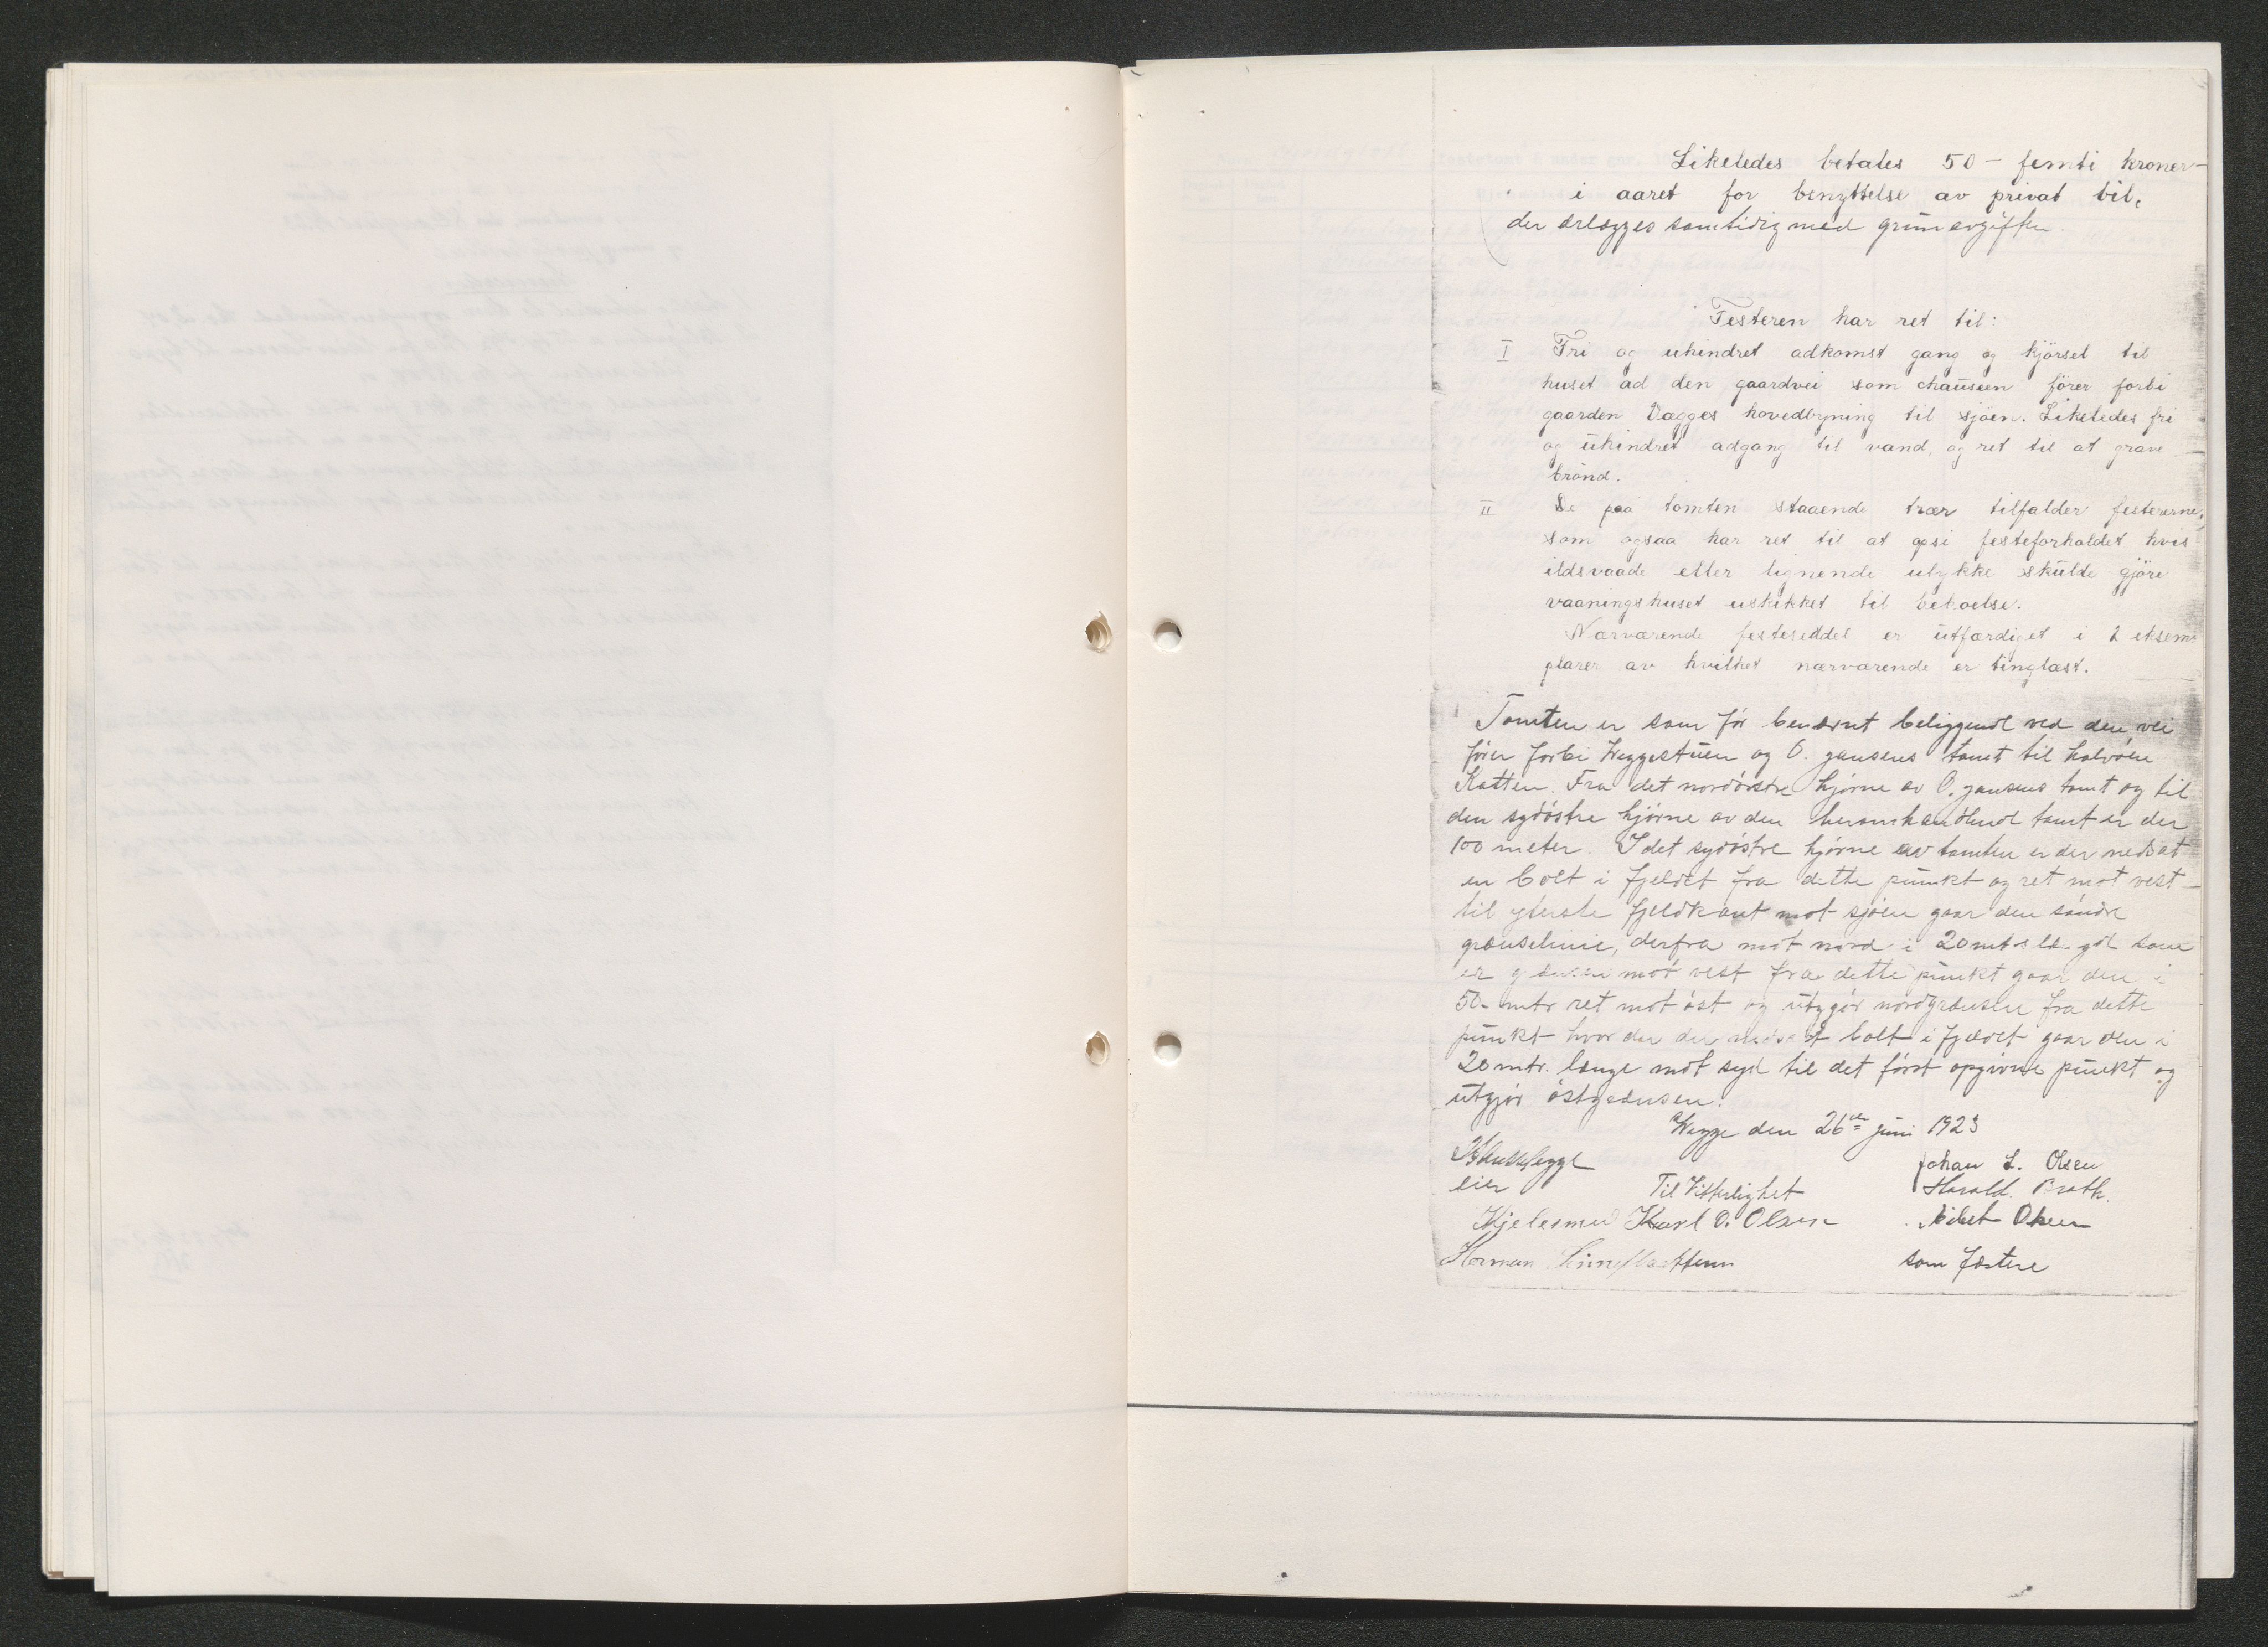 Likeledes betales 50 - femti kroner -
i aaret for benyttelse av privat bil,
der erlægges samtidig med grunavgiften.
Festeren har ret til:
I Fri og uhindret adkomst gang og kjörsel til
huset ad den gaardvei som chauseen förer forbi
gaarden Vægges hovedbyning til sjöen. Likeledes fri
og uhindret adgang til vand, og ret til at grave
brönd.
II De paa tomten staaende trær tilfalder festererne,
som ogsaa har ret til at opsi festeforholdet hvis
ildsvaade eller lignende ulykke skulde gjöre
vaaningshuset uskikket til beboelse.
Nærværende festeseddel er utfærdiget i 2 eksem-
plarer av hvilket nærværende er tinglæst.
Tomten er som för benævnt beliggende ved den vei
förer forbi Weggestuen og O. Jansens tomt til halvöen
Katten. Fra det nordöstre hjörne av O. Jansens tomt og til
den sydöstre hjörne av den heromhandlende tomt er der
100 meter. I det sydöstre hjörne av tomten er der nedsat
en bolt i fjeldet fra dette punkt og ret mot vest -
til yterste fjeldkant mot sjöen gaar den söndre
grænselinie, derfra mot nord i 20 mtr som
er grænsen mot vest fra dette punkt gaar den i
50 - mtr ret mot öst og utgjör nordgrænsen fra dette
punkt hvor der er nedsat bolt i fjeldet gaar den i
20 mtr. længe mot syd til det först opgivne punkt og
utgjör östgrænsen.
Wegge den 26de juni 1923
Johan L. Olsen
eier Til Vitterlighet Harald
Karl O. Olsen Olsen
Herman som fæstere